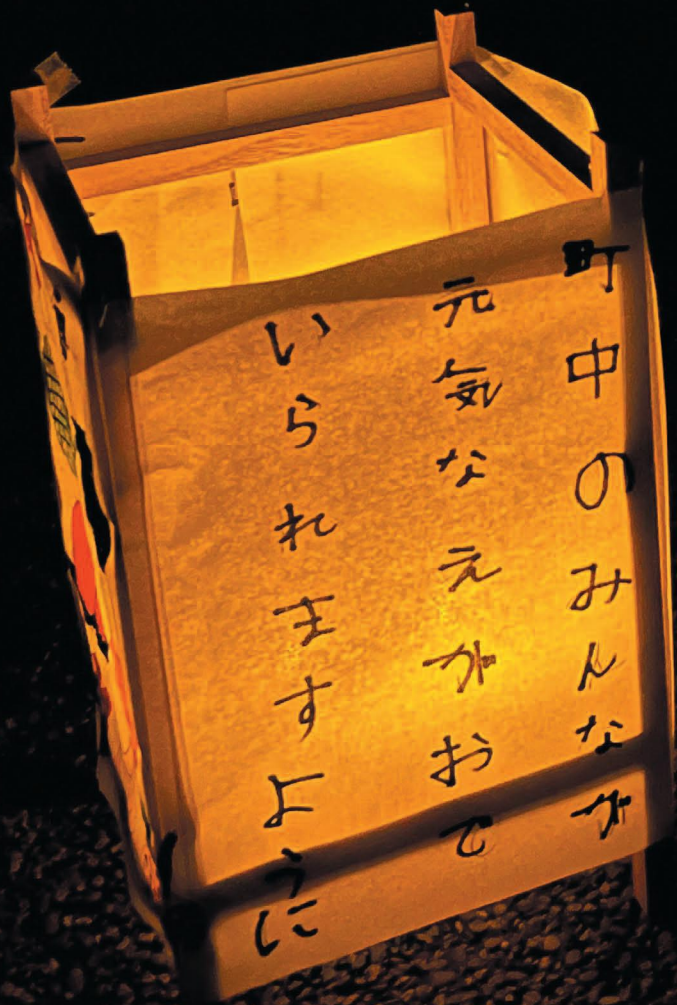 町中のみんなが
元気なえがおで
いられますように